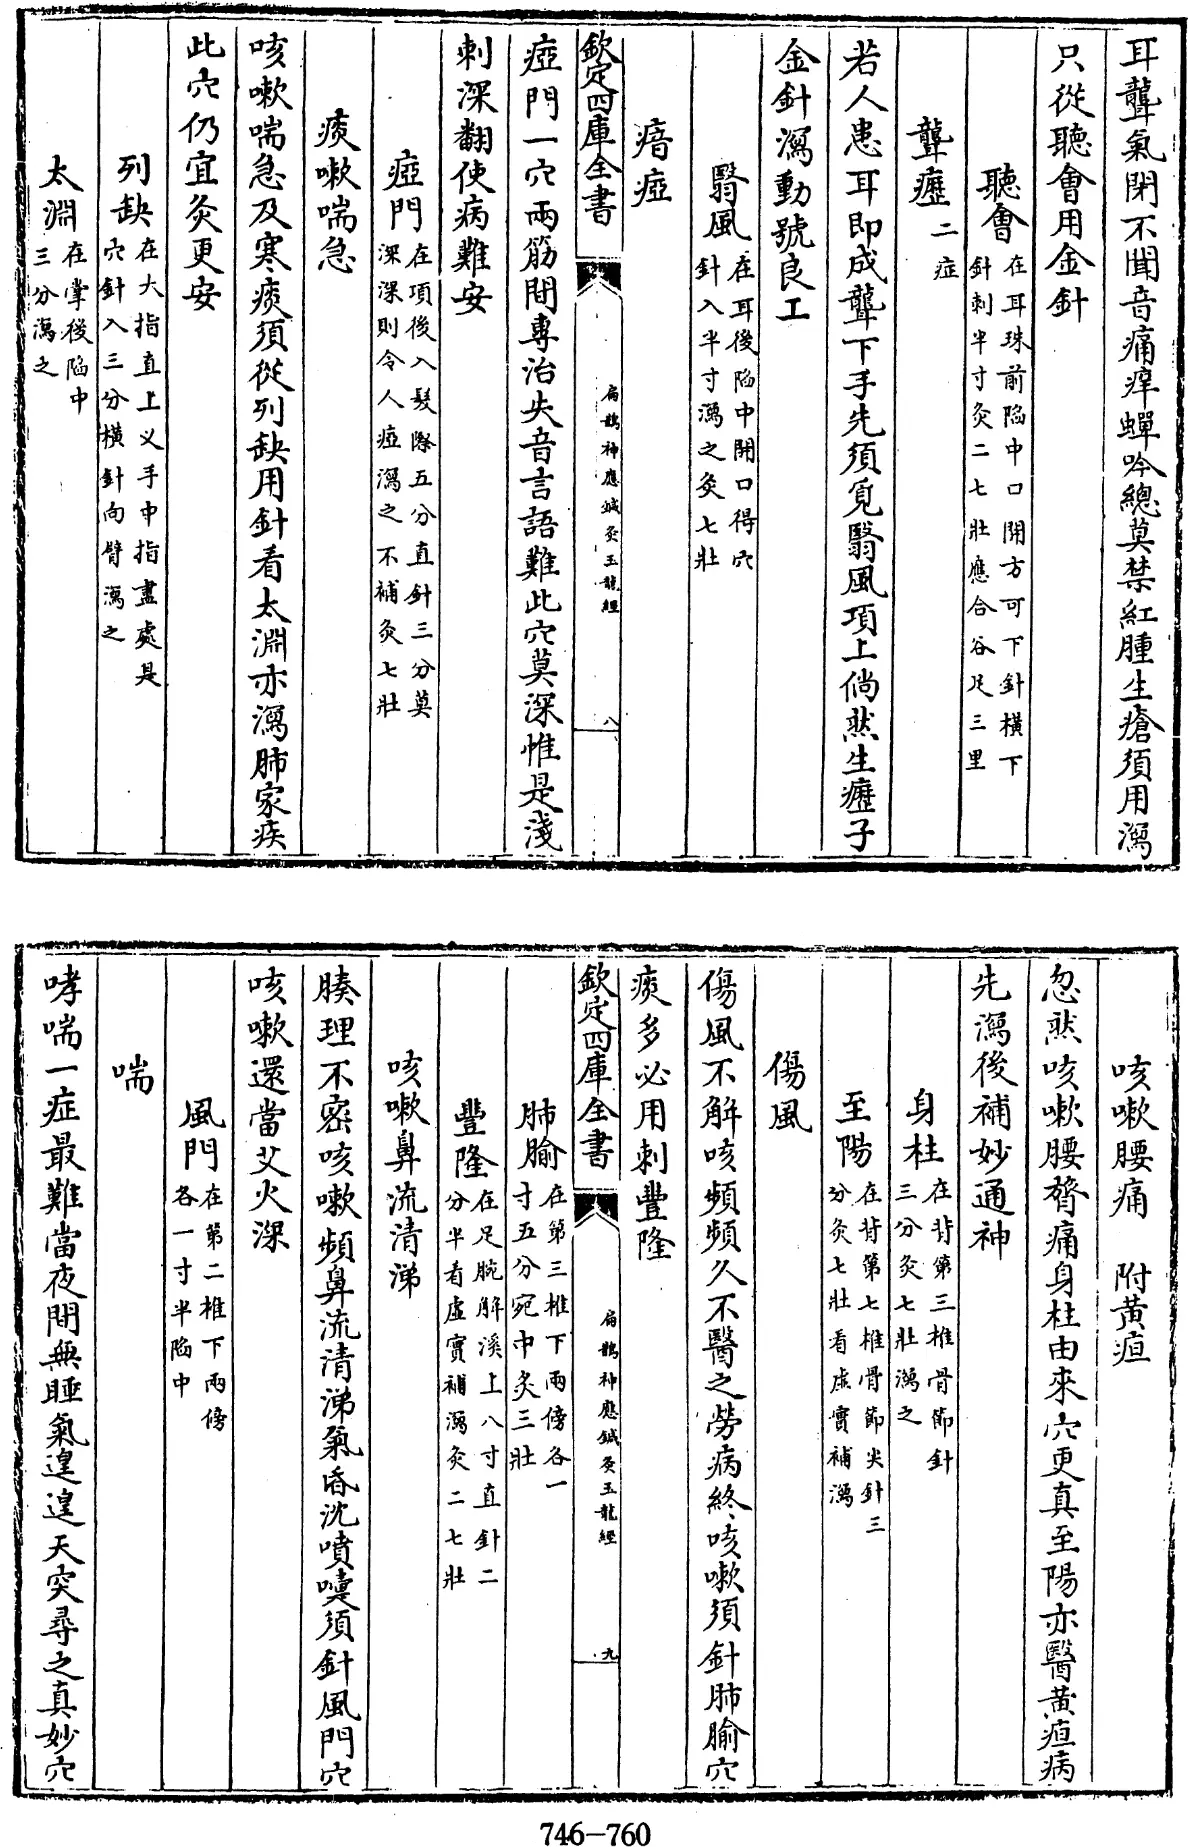 耳聾氣閉不聞音痛痒蟬吟總莫禁紅腫生瘡須用瀉
只從聽會用金針
聽會
在耳珠前陷中口開方可下針橫下
針刺半寸灸二七壯應合谷足三里
聾瘂二症
若人患耳即成聾下手先須覓翳風項上倘然生癧子
金針瀉動號良工
翳風
在耳後陷中開口得穴
針入半寸瀉之灸七壯
瘖瘂
欽定四庫全書
扁鵲神應鍼灸玉龍經
八
瘂門一穴兩筋間專治失音言語難此穴莫深惟是淺
刺深翻使病難安
瘂門
在項後入髮際五分直針三分莫
深深則令人瘂瀉之不補灸七壯
痰嗽喘急
咳嗽喘急及寒痰須從列缺用針看太淵亦瀉肺家疾
此穴仍宜灸更安
列缺
在大指直上义手中指盡處是
穴針入三分橫針向臂瀉之
太淵
在掌後陷中
三分瀉之
咳嗽腰痛　附黃疸
忽然咳嗽腰膂痛身柱由來穴更真至陽亦醫黃疸病
先瀉後補妙通神
身柱
在背第三椎骨節針
三分灸七壯瀉之
至陽
在背第七椎骨節尖針三
分灸七壯看虛實補瀉
傷風
傷風不解咳頻頻久不醫之勞病終咳嗽須針肺腧穴
痰多必用刺豐隆
欽定四庫全書
扁鵲神應鍼灸玉龍經
九
肺腧
在第三椎下兩傍各一
寸五分宛中灸三壯
豐隆
在足腕解溪上八寸直針二
分半看虛實補瀉灸二七壯
咳嗽鼻流清涕
腠理不密咳嗽頻鼻流清涕氣昏沈噴嚏須針風門穴
咳嗽還當艾火深
風門
在第二椎下兩傍
各一寸半陷中
喘
哮喘一症最難當夜間無睡氣遑遑天突尋之真妙穴
746-760